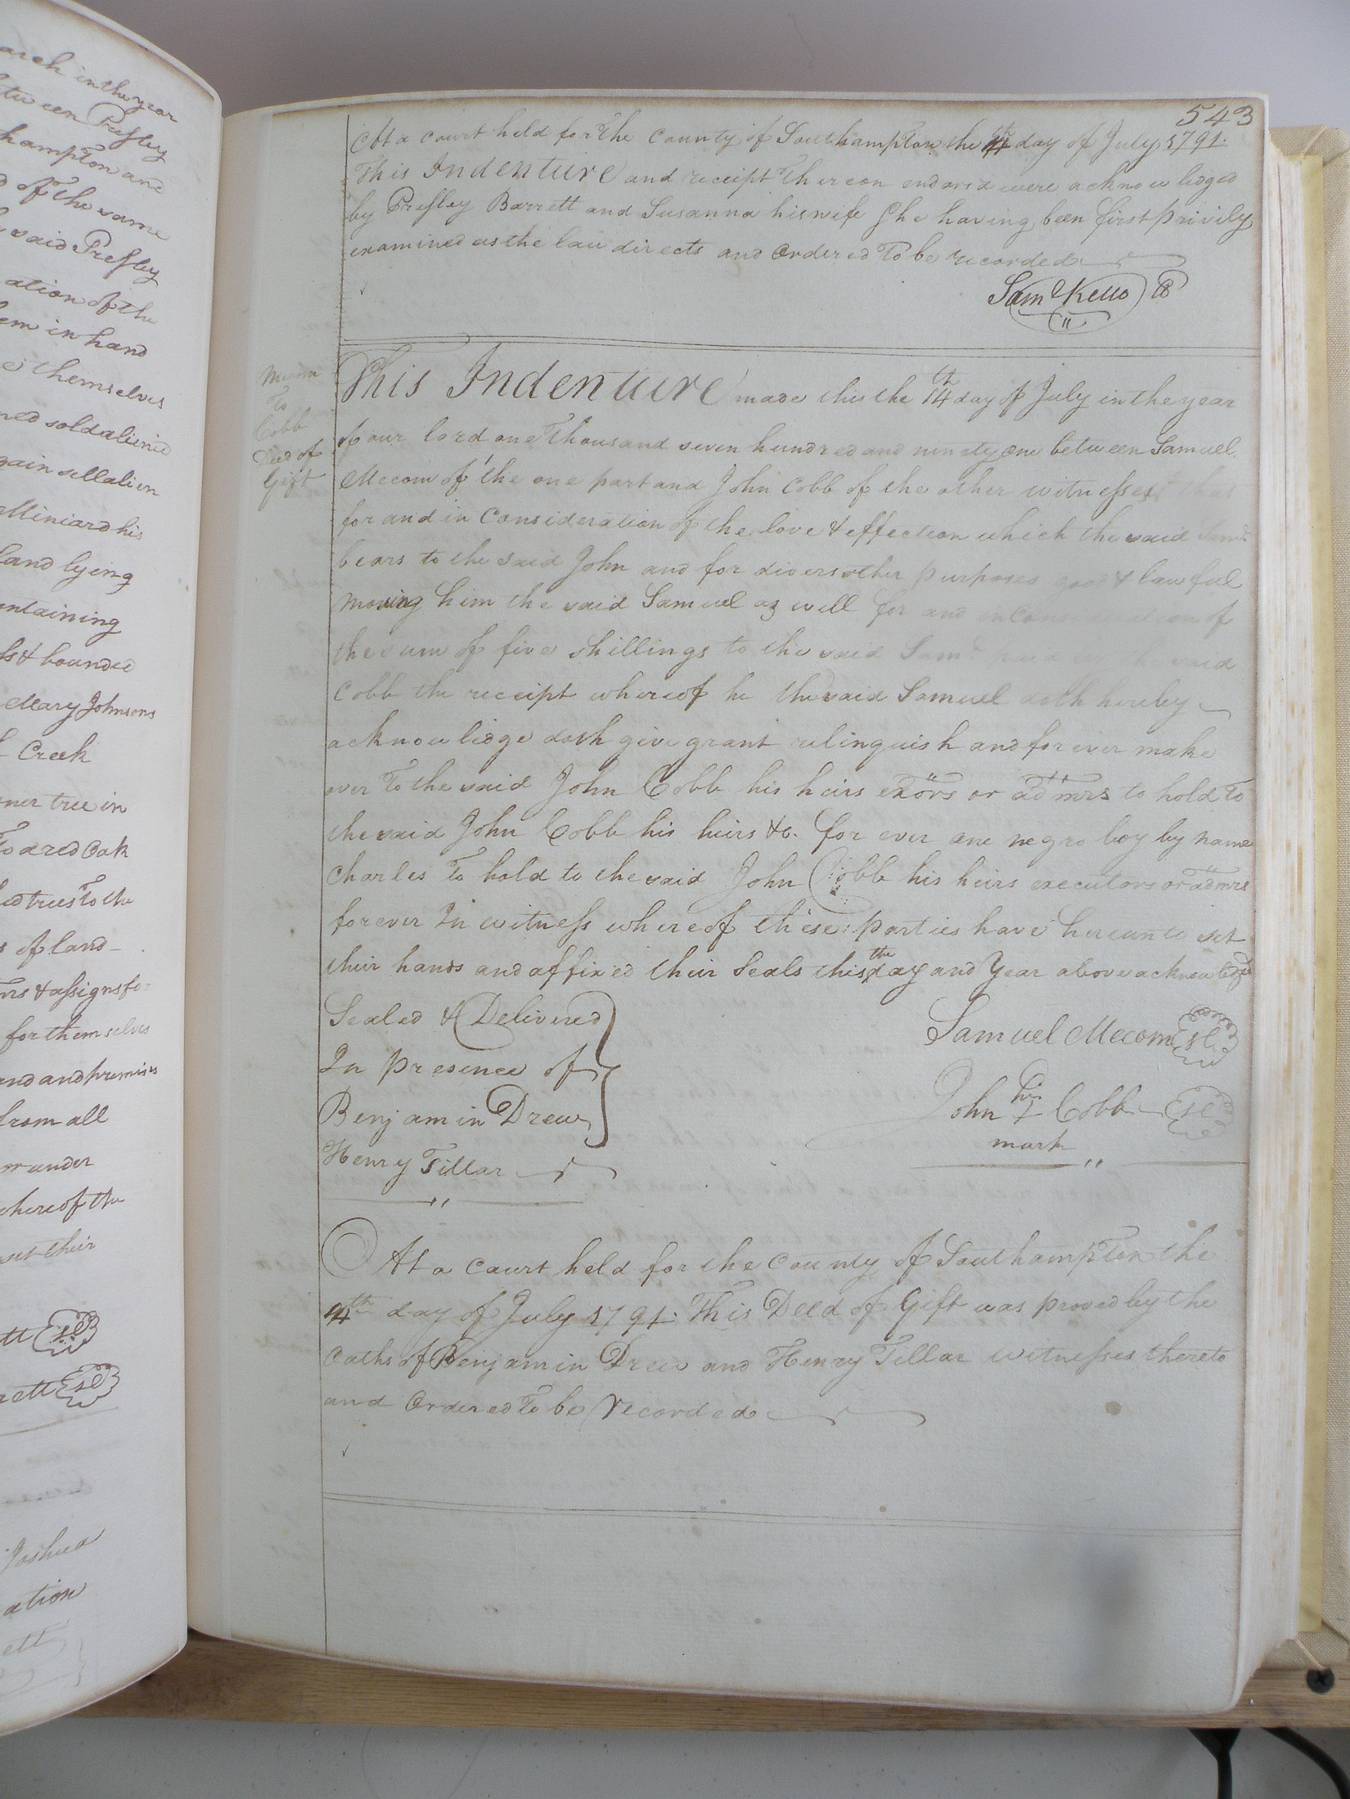 arch in the year
tween Presley
hampton and
d of the same
said Presley
ation of the
em in hand
themselves
ned sold aliened
gain sell alien
Miniard his
land lyeng
ontaining
& bounded
Mary Johnsons
Creek
ner tree in
To a red Oak
ed trees To the
s of land
& assigns for
for themselves
and and premises
from all
or under
whereof the
set their
ett
rett
Joshua
ation
ett
543
At a court held for The County of Southampton the day of July 1791.
This Indenture and receipt Thereon endorsd were acknowlidged
by Presley Barrett and Susanna his wife She having been first privily
examined as the law directs and Ordered To be recorded
Saml Kello CC
Mecom
To
Cobb
Deed of
Gift
This Indenture made this the 14th day of July in the year
of our lord one Thousand seven hundred and ninety one between Samuel
Mecom of the one part and John Cobb of the other witnesses that
for and in Consideration of the love & effection which the said Saml
bears to the said John and for divers other purposes good & lawful
moving him the said Samuel as well for and in Consideration of
the sum of five shillings to the said Saml said
Cobb the receipt whereof he the said Samuel doth hereby
acknowlidge doth give grant relinquish and forever make
over To the said John Cobb his heirs exors or admrs to hold To
the said John Cobb his heirs &c. for ever one negro boy by name
Charles To hold to the said John Cobb his heirs executors or admrs
forever In witness whereof these parties have hereunto set
their hands and affixed their Seals this the day and Year above acknowlidged
Sealed & Delivered
In presence of
Benjamin Drew
Henry Tillar
Samuel Mecom
John his Cobb
mark
At a Court held for the County of Southampton the
day of July 1791. This Deed of Gift was proved by the
Oaths of Benjamin Drew and Henry Tillar witnesses thereto
and Ordered To be recorded